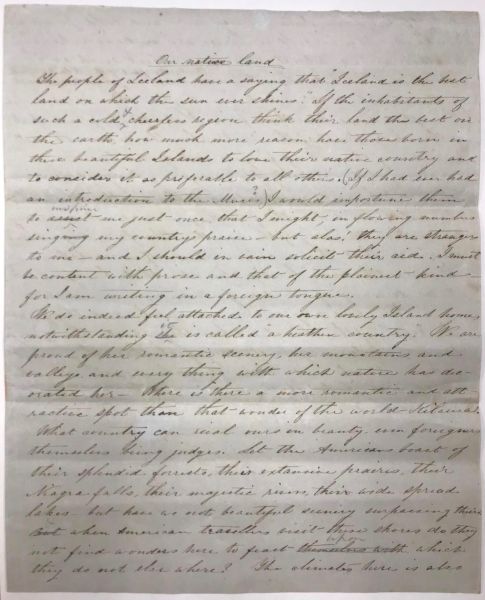 Our native land
The people of Iceland have a saying that "Iceland is the best
land on which the sun ever shines." If the inhabitants of
such a cold & cheerless region think their land the best on
the earth, how much more reason have those born in
these beautiful Islands to love their native country and
to consider it as preferable to all others. (If I had ever had
an introduction to the Muses?, I would importune them
inspire
to assist me just once, that I might in flowing numbers
singing my country's praise – but alas! they are strangers
to me – and I should in vain solicit their aid. I must
be content with prose and that of the plainest kind –
for I am writing in a foreign tongue.
We do indeed feel attached to our own lovely Island home,
notwithstanding "she is called "a heathen country." We are
proud of her romantic scenery, her mountains and
valleys and every thing with which nature has dec-
orated her – Where is there a more romantic and att-
ractive spot than that wonder of the world – Kilauea?
What country can rival ours in beauty, even foreigners
themselves being judges. Let the Americans boast of
their splendid forrests, their extensive prairies, their
Niagra falls, their majestic rivers, their wide spread
lakes – but have we not beautiful scenery surpassing theirs
But when American travellers visit these shores do they
upon
not find wonders here to feast themselves with which
they do not else where? The climate here is also